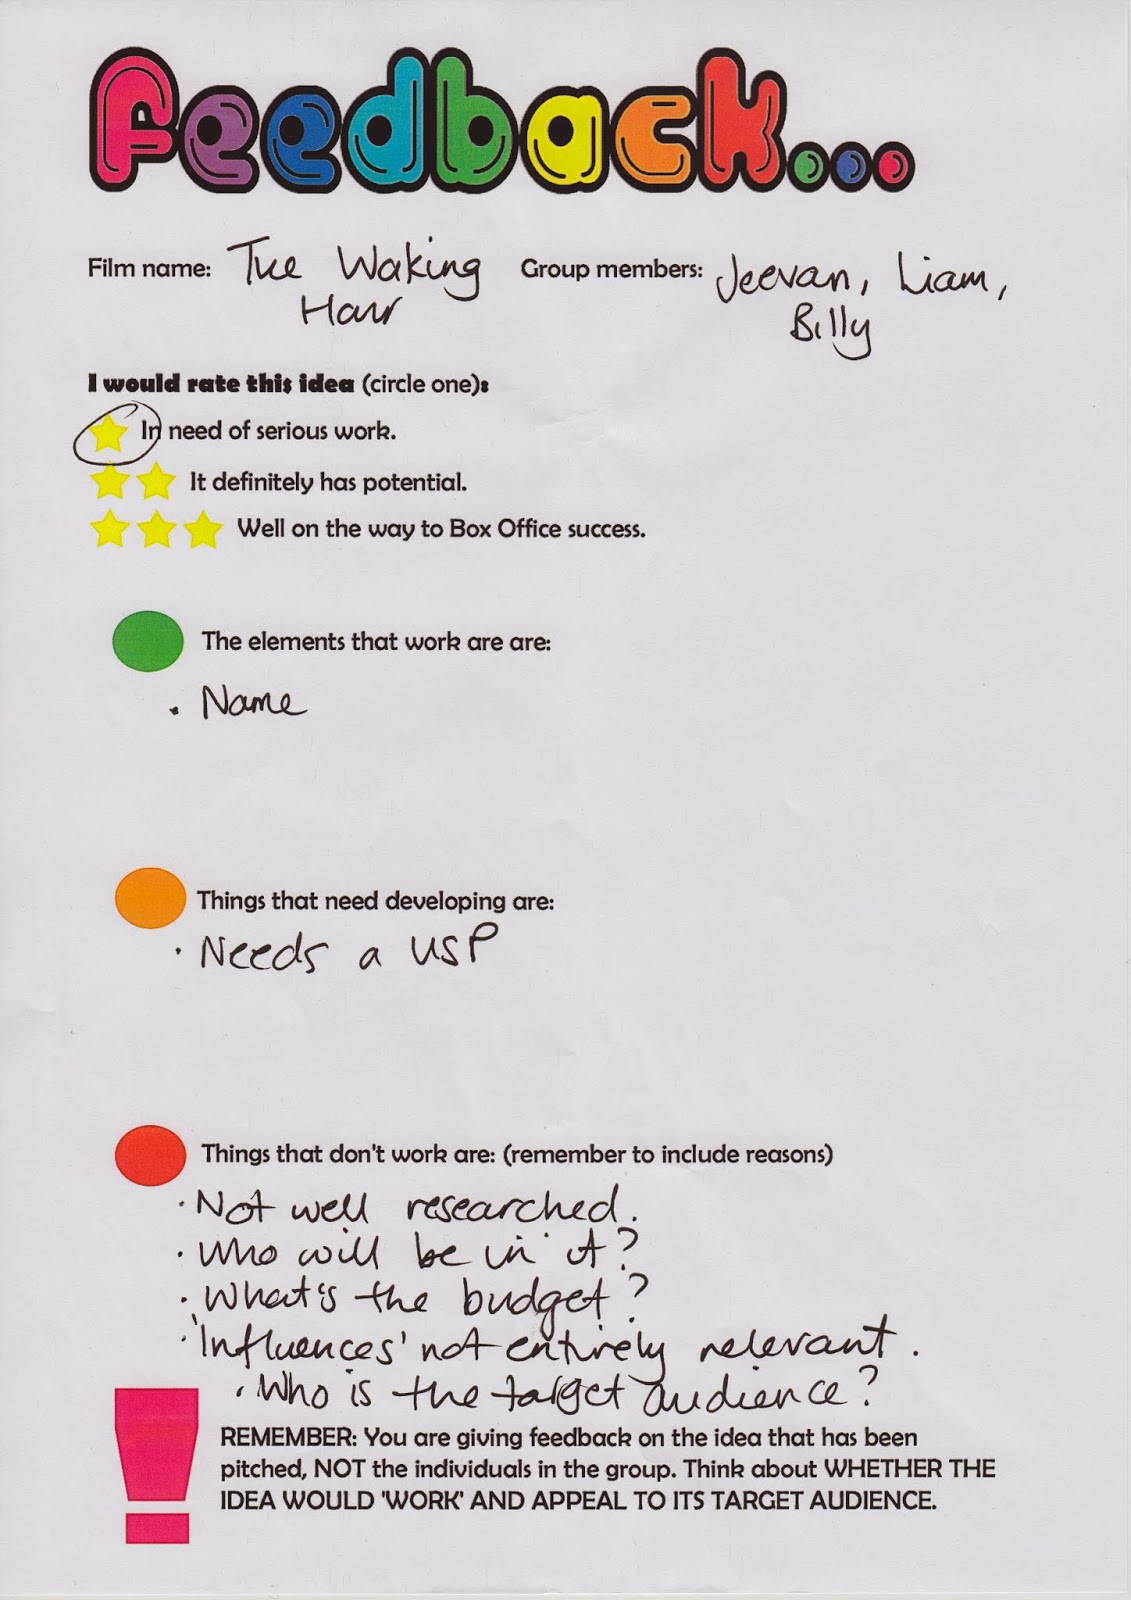 Feedback...
Film name: The Waking Group members: Jeevan, Liam,
Hour Billy
I would rate this idea (circle one):
In need of serious work.
It definitely has potential.
Well on the way to Box Office success.
The elements that work are are:
• Name
Things that need developing are:
• Needs a USP
Things that don't work are: (remember to include reasons)
• Not well researched.
• Who will be in it?
• What's the budget?
• 'Influences' not entirely relevant.
• Who is the target audience?
REMEMBER: You are giving feedback on the idea that has been
pitched, NOT the individuals in the group. Think about WHETHER THE
IDEA WOULD 'WORK' AND APPEAL TO ITS TARGET AUDIENCE.